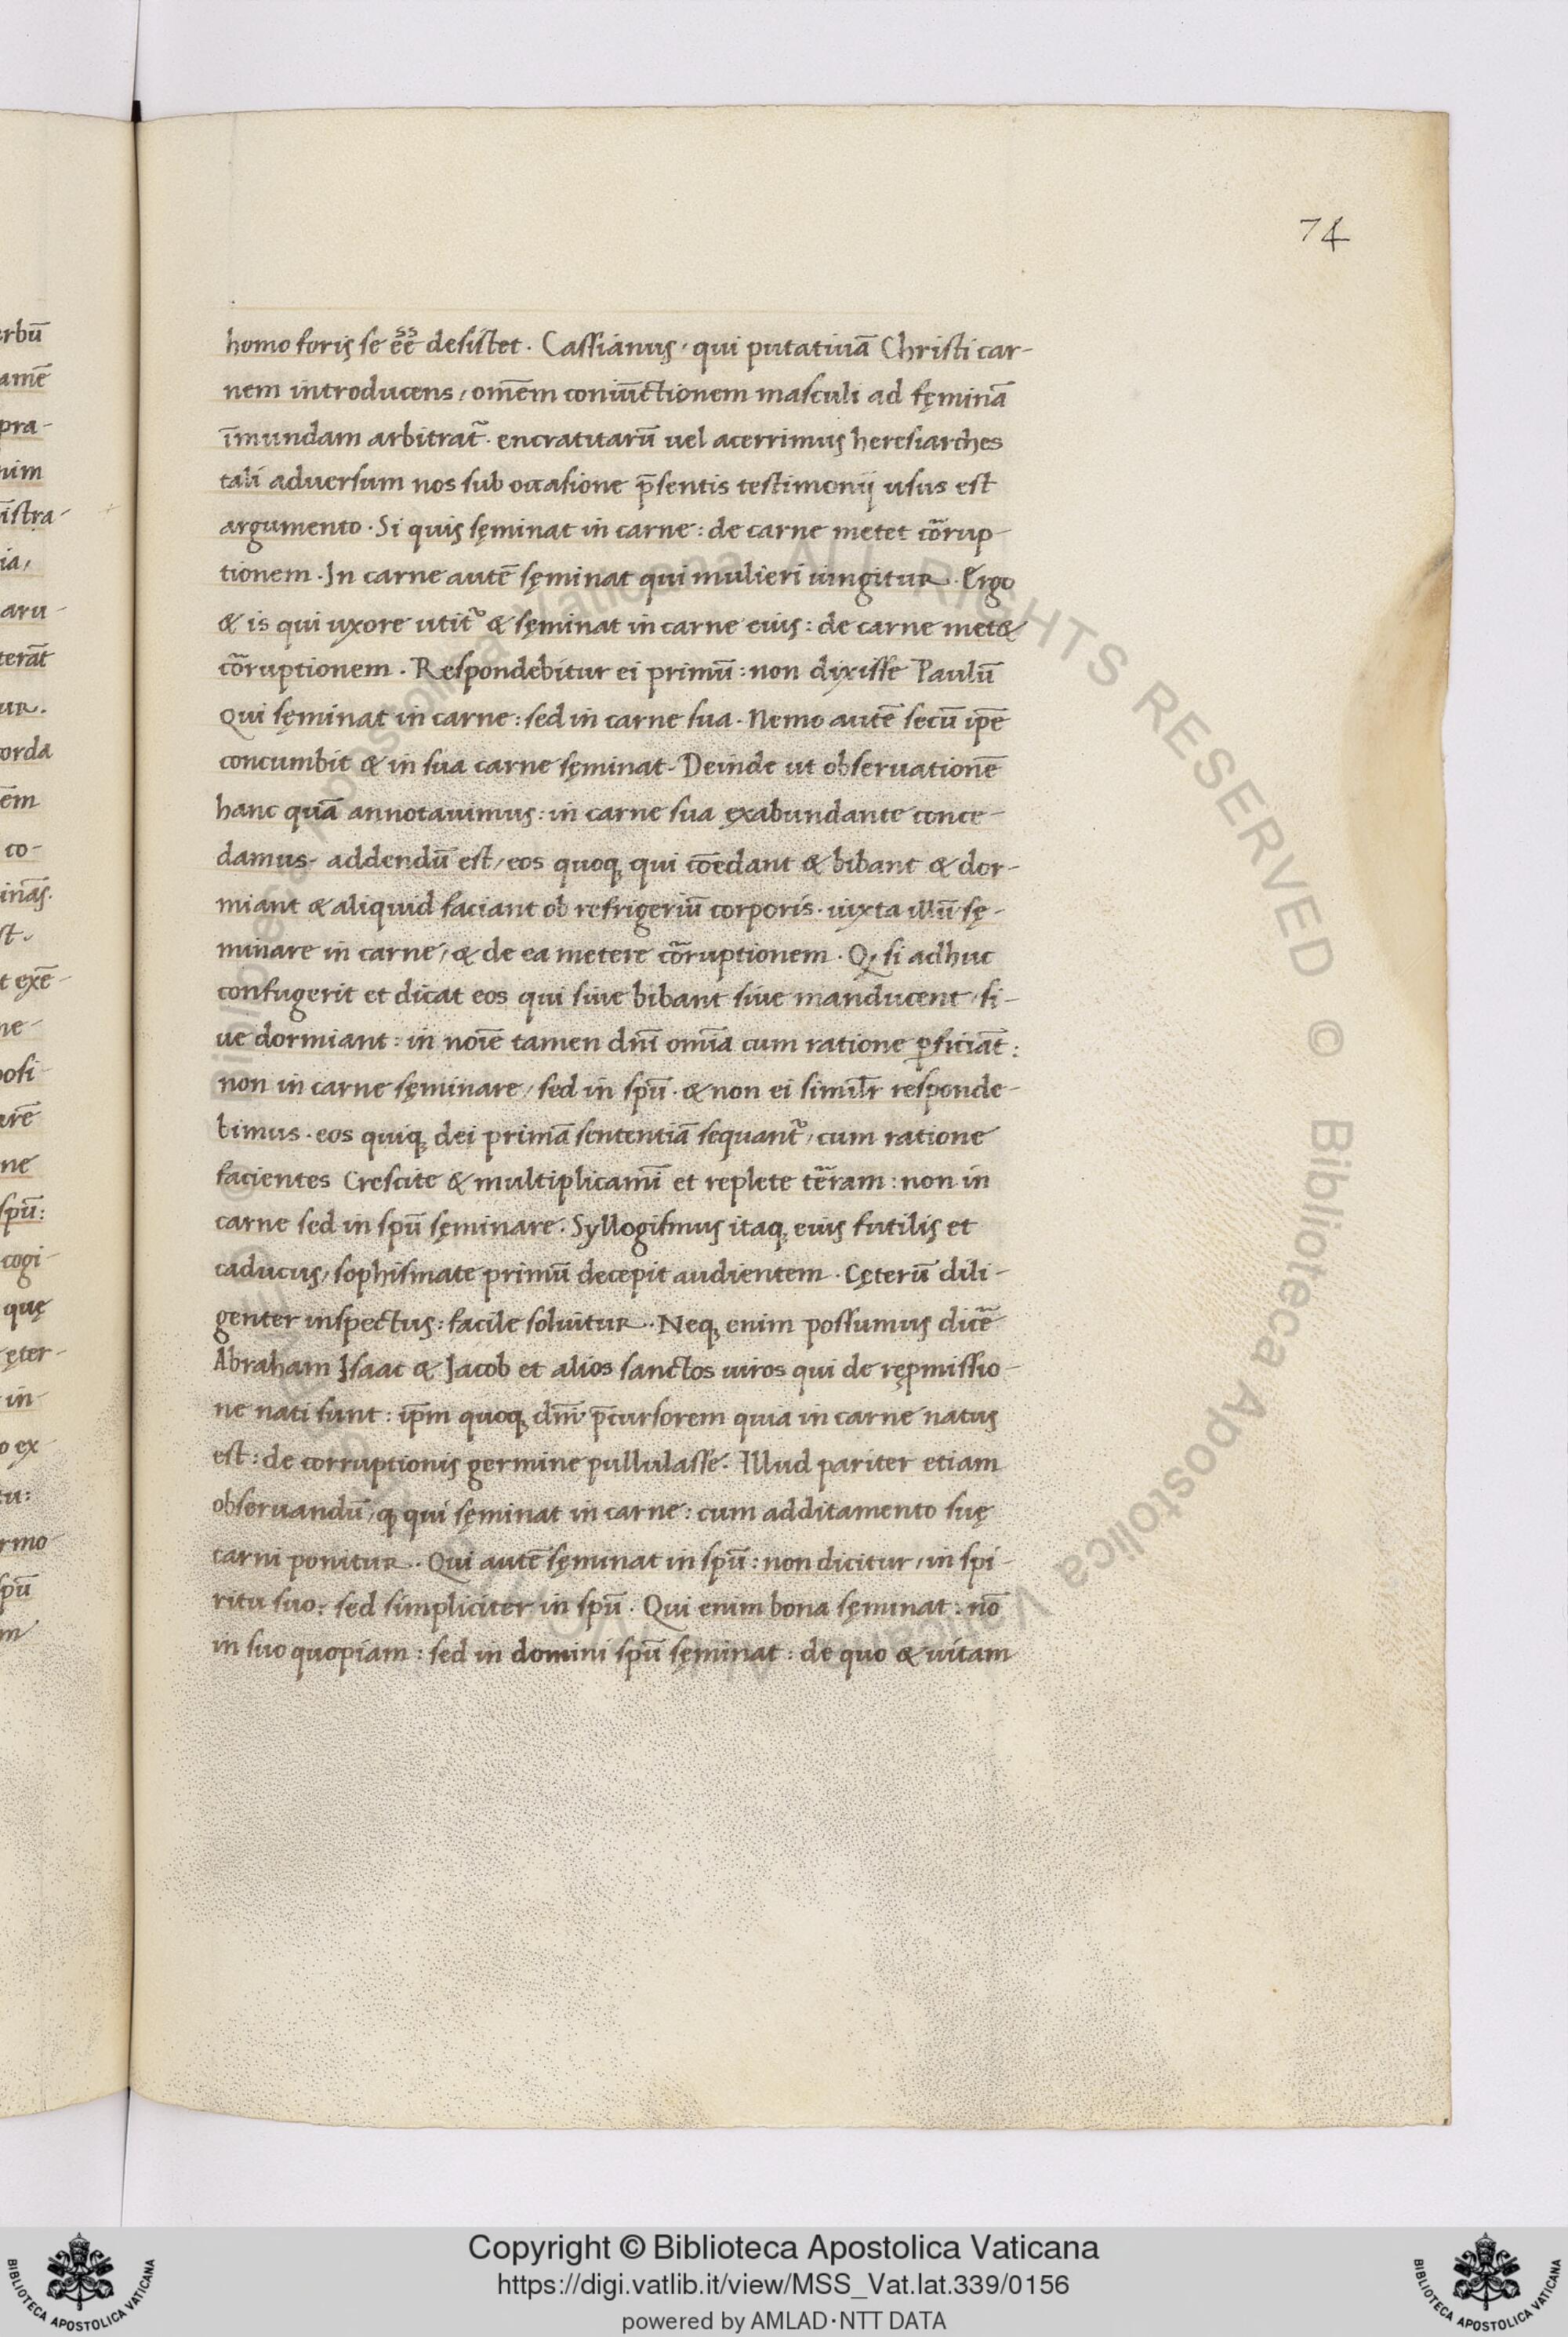 74
homo foris se ēē desistet. Cassianus, qui putatiuā Christi car-
nem introducens, omēm coniūctionem masculi ad fęminā
īmundam arbitrat᷑. encratitarū uel acerrimus heresiarches
tali aduersum nos sub occasione p̄sentis testimonij usus est
argumento. Si quis sęminat in carne: de carne metet cōrup-
tionem. In carne autē sęminat qui mulieri iungitur. Ergo
& is qui uxore utit᷑ & sęminat in carne eius: de carne met&
cōruptionem. Respondebitur ei primū: non dixisse Paulū
Qui sęminat in carne: sed in carne sua. Nemo autē secū ip̄e
concumbit & in sua carne sęminat. Deinde ut obseruationē
hanc quā annotauimus: in carne sua exabundante conce-
damus. addendū est, eos quoq; qui cōedant & bibant & dor-
miant & aliquid faciant ob refrigeriū corporis. iuxta illū sę-
minare in carne, & de ea metere cōruptionem. Q; si adhuc
confugerit et dicat eos qui siue bibant siue manducent, si-
ue dormiant: in noīe tamen dn̄i omīa cum ratione ꝑficiāt:
non in carne sęminare, sed in spū. & non ei simil̄r responde-
bimus. eos quiq; dei primā sententiā sequant᷑, cum ratione
facientes Crescite & multiplicamī et replete tēram: non in
carne sed in spū sęminare. Syllogismus itaq; eius futilis et
caducus, sophismate primū decepit audientem. Cęterū dili-
genter inspectus: facile soluitur. Neq; enim possumus dicē
Abraham Isaac & Jacob et alios sanctos uiros qui de rępmissio-
ne nati sunt: ip̄m quoq; dn̄i p̄cursorem quia in carne natus
est: de corruptionis germine pullulasse. Illud pariter etiam
obseruandū, q; qui sęminat in carne: cum additamento suę
carni ponitur. Qui autē sęminat in spū: non dicitur, in spi-
ritu suo: sed simpliciter in spū. Qui enim bona sęminat: nō
in suo quopiam: sed in domini spū sęminat: de quo & uitam
Copyright © Biblioteca Apostolica Vaticana
https://digi.vatlib.it/view/MSS_Vat.lat.339/0156
powered by AMLAD·NTT DATA
BIBLIOTECA APOSTOLICA VATICANA
BIBLIOTECA APOSTOLICA VATICANA